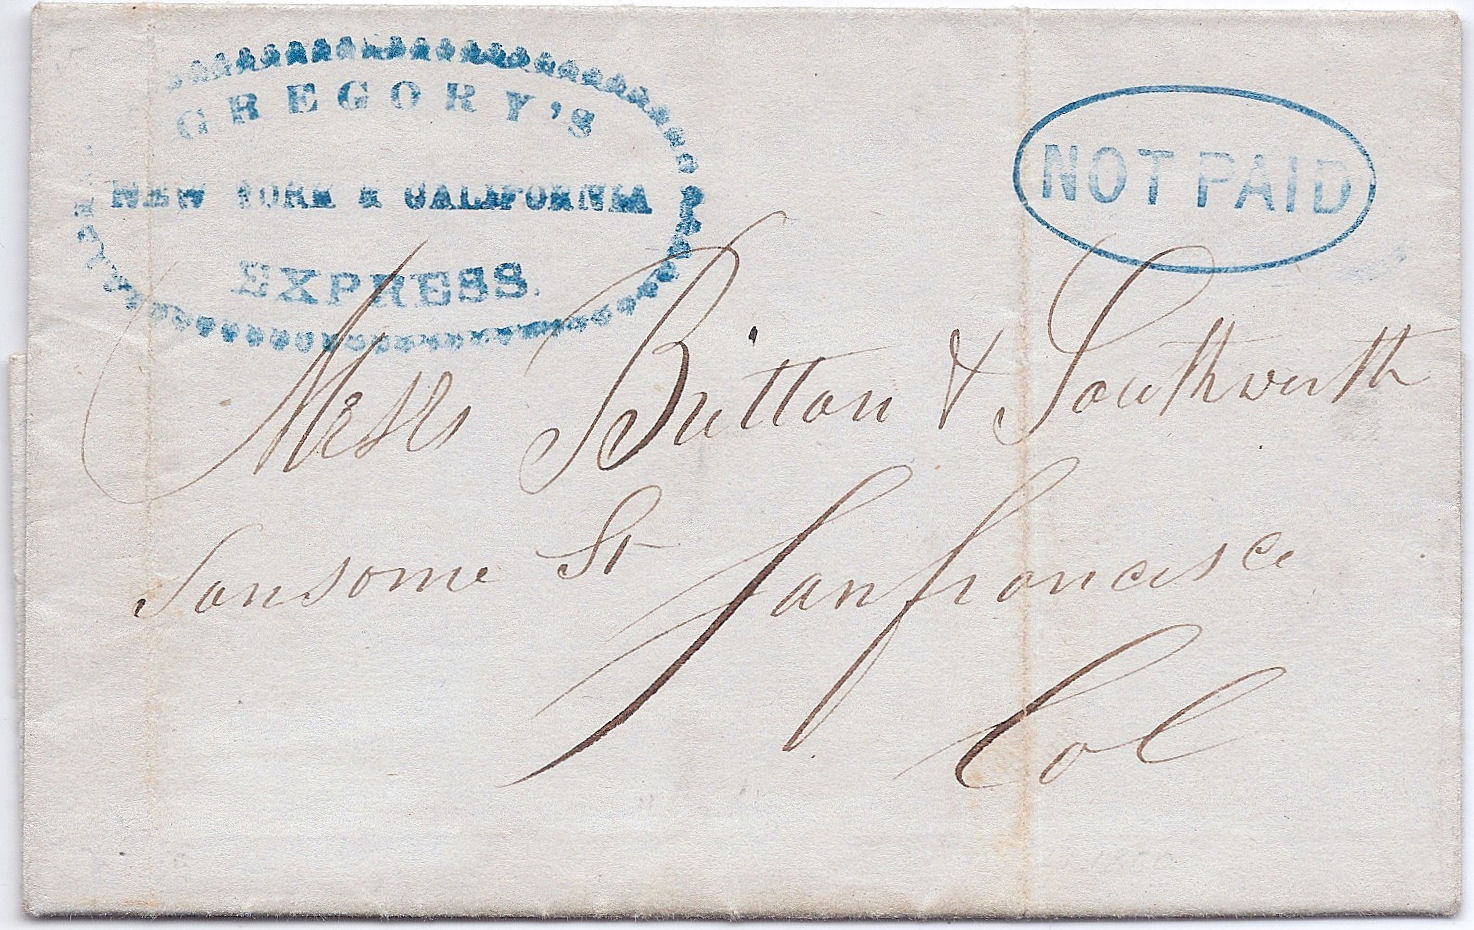 GREGORY'S
NEW YORK & CALIFORNIA
EXPRESS.
NOT PAID
Messs Britton & Southworth
Sansome St Sanfrancisco
Cal